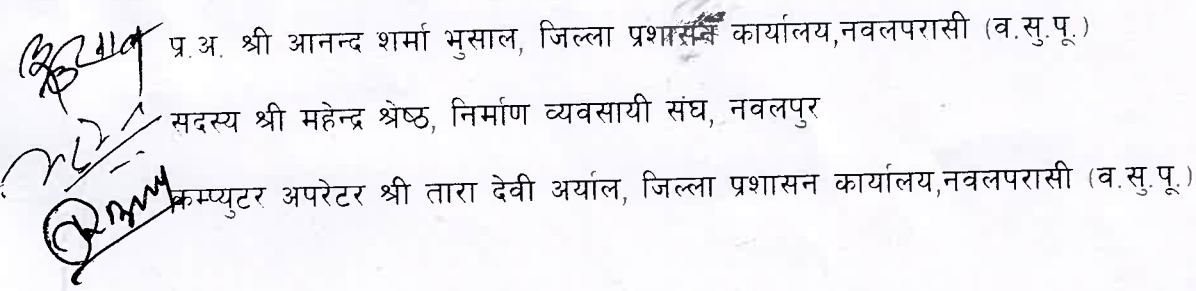 प्र.अ. श्री आनन्द शर्मा भुसाल, जिल्ला प्रशासन कार्यालय,नवलपरासी (व.सु.पू.)
सदस्य श्री महेन्द्र श्रेष्ठ, निर्माण व्यवसायी संघ, नवलपुर
कम्प्युटर अपरेटर श्री तारा देवी अर्याल, जिल्ला प्रशासन कार्यालय,नवलपरासी (व.सु.पू.)